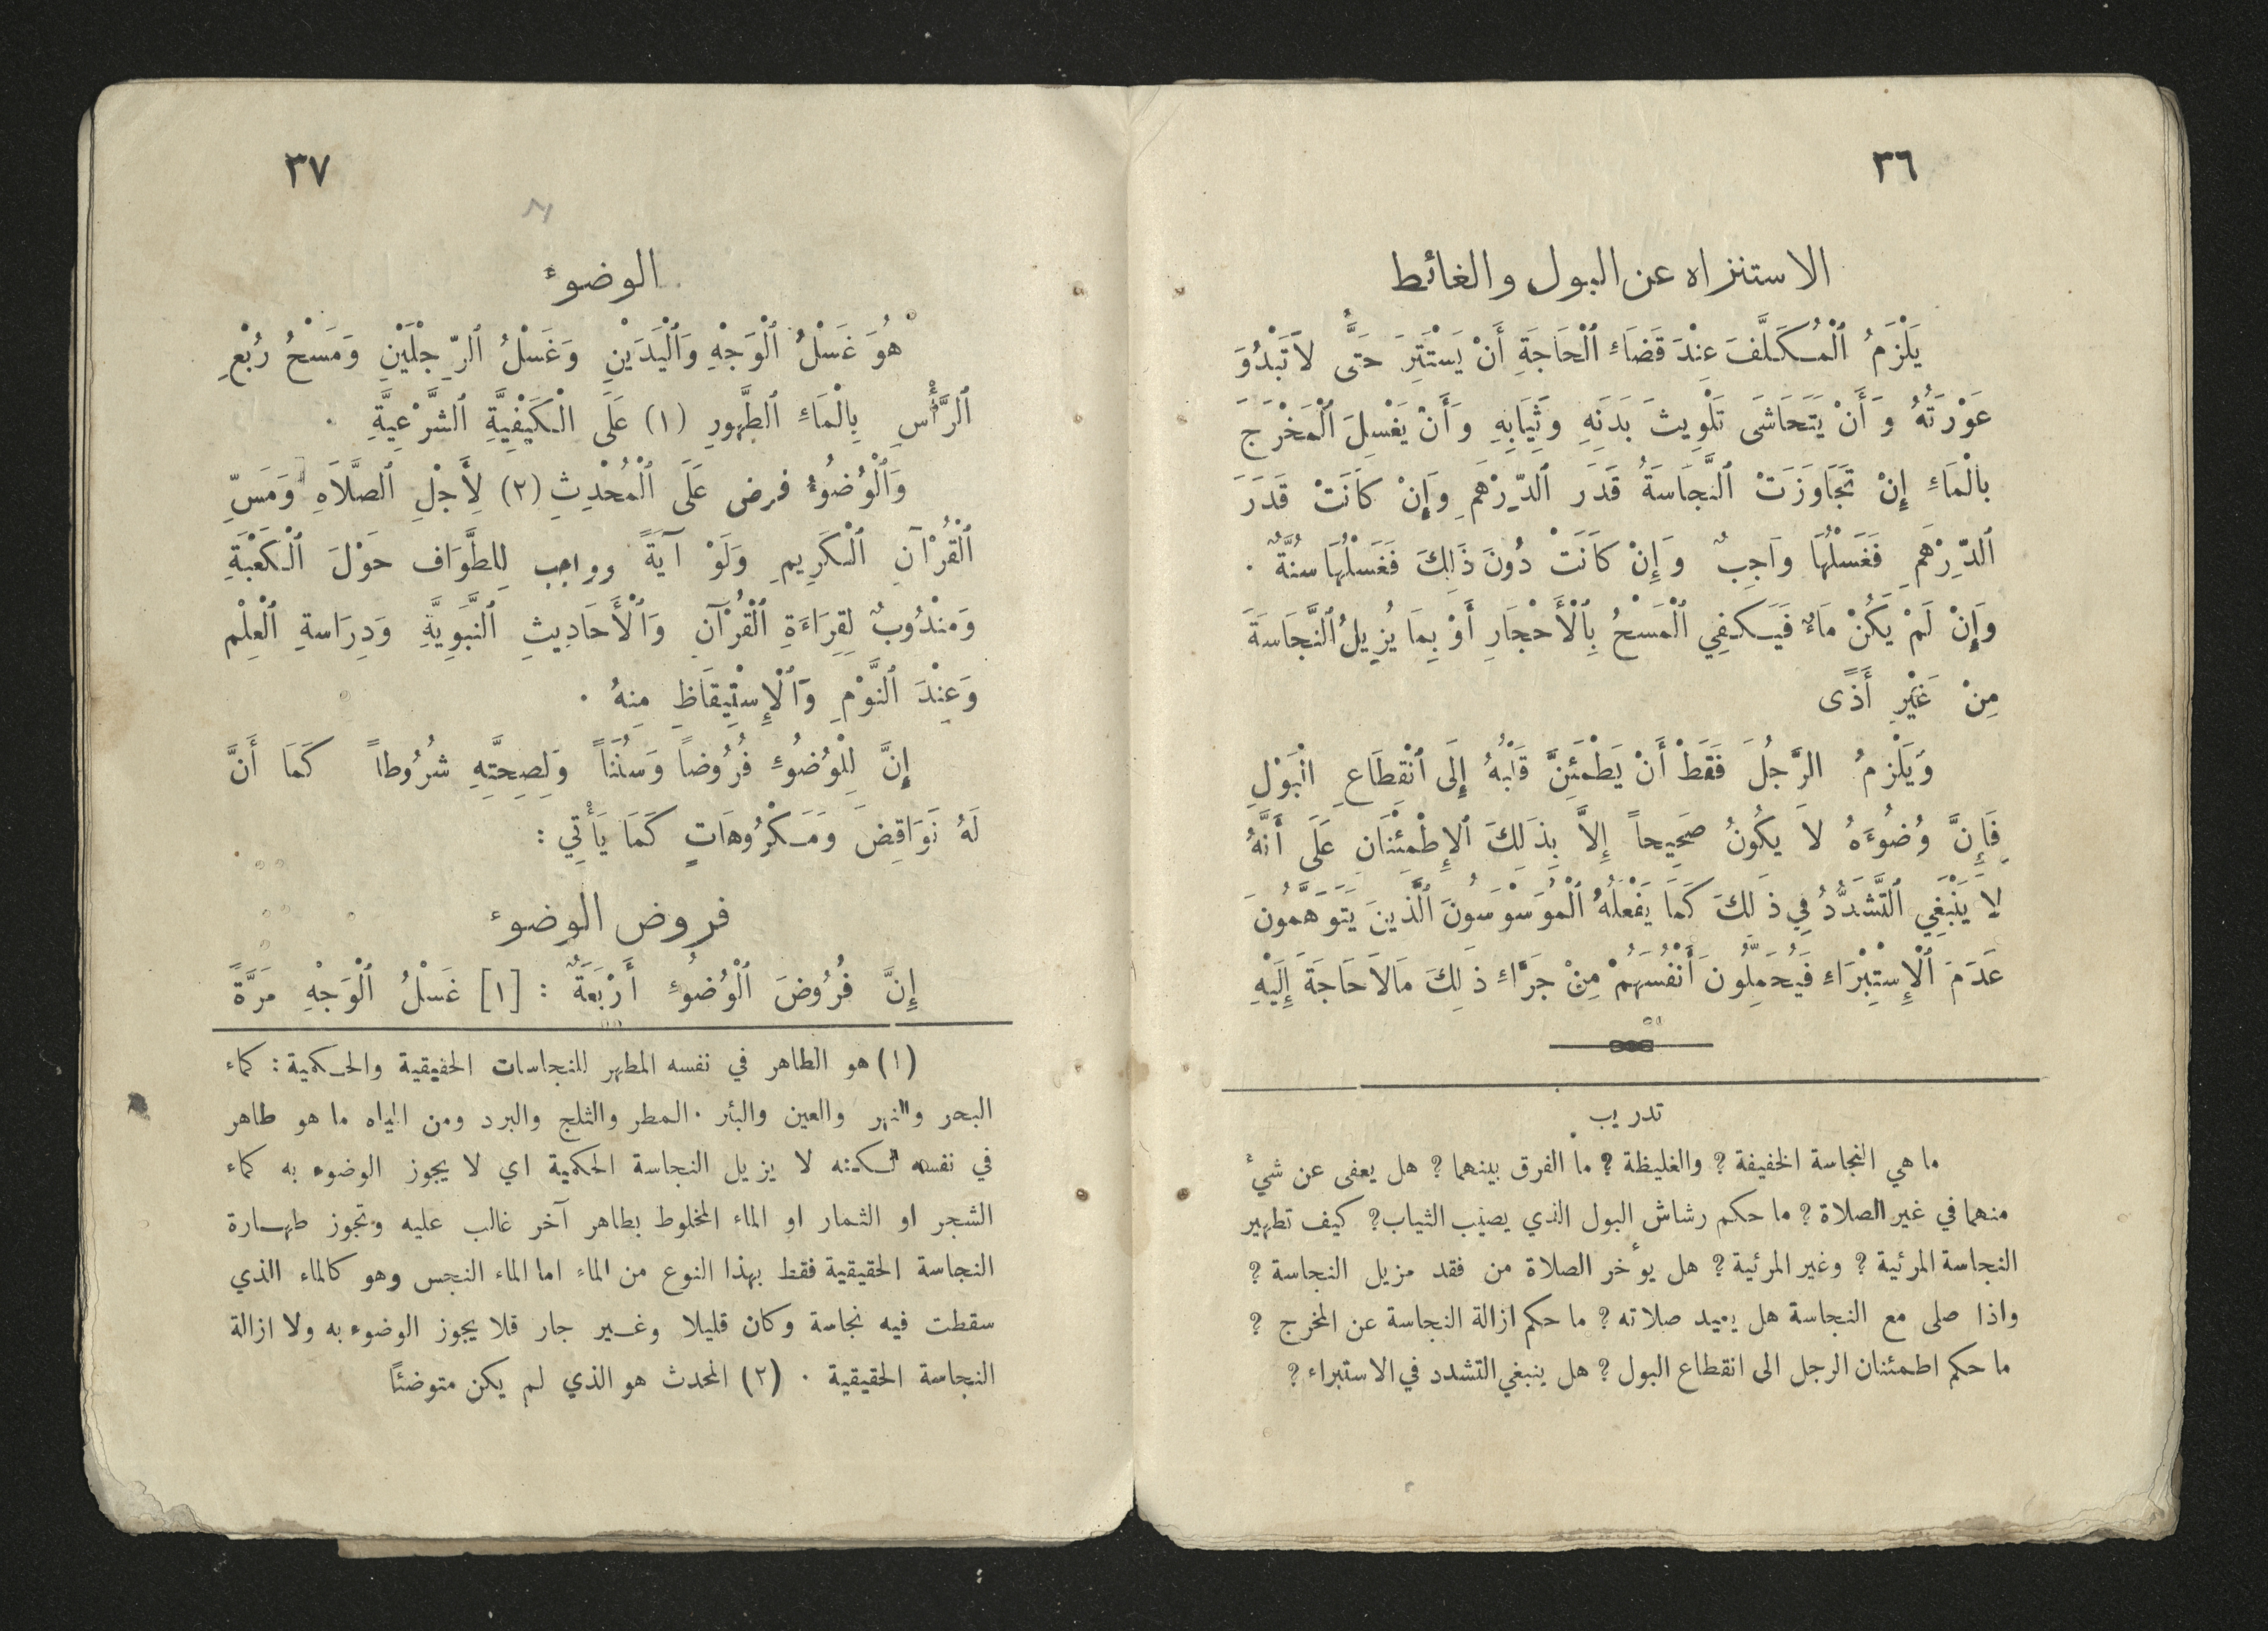 ٣٦
الاستنزاه عن البول والغائط
يَلْزَمُ ٱلْمُكَلَّفَ عِنْدَ قَضَاءِ ٱلْحَاجَةِ أَنْ يَسْتَتِرَ حَتَّى لاَ تَبْدُوَ
عَوْرَتُهُ وَأَنْ يَتَحَاشَى تَلْوِيثَ بَدَنِهِ وَثِيَابِهِ وَأَنْ يَغْسِلَ ٱلْمَخْرَجَ
بِالْمَاءِ إِنْ تَجَاوَزَتْ ٱلنَّجَاسَةُ قَدَرَ ٱلدِّرْهَمِ وَإِنْ كَانَتْ قَدَرَ
ٱلدِّرْهَمِ فَغَسْلُهَا وَاجِبٌ وَإِنْ كَانَتْ دُونَ ذَلِكَ فَغَسْلُهَا سُنَّةٌ .
وَإِنْ لَمْ يَكُنْ مَاءٌ فَيَكْفِي ٱلْمَسْحُ بِٱلْأَحْجَارِ أَوْ بِمَا يُزِيلُ ٱلنَّجَاسَةَ
مِنْ غَيْرِ أَذًى
وَيَلْزَمُ الرَّجُلَ فَقَطْ أَنْ يَطْمَئِنَّ قَلْبُهُ إِلَى ٱنْقِطَاعِ الْبَوْلِ
فَإِنَّ وُضُوءَهُ لاَ يَكُونُ صَحِيحاً إِلاَّ بِذَلِكَ ٱلإِطْمِئْنَانِ عَلَى أَنَّهُ
لاَ يَنْبَغِي ٱلتَّشَدُّدُ فِي ذَلِكَ كَمَا يَفْعَلُهُ ٱلْمُوَسْوِسُونَ ٱلَّذِينَ يَتَوَهَّمُونَ
عَدَمَ ٱلْإِسْتِبْرَاءِ فَيُحَمِّلُونَ أَنْفُسَهُمْ مِنْ جَرَّاءِ ذَلِكَ مَالاَ حَاجَةَ إِلَيْهِ
تدريب
ما هي النجاسة الخفيفة ؟ والغليظة ؟ ما الفرق بينهما ؟ هل يعفى عن شيء
منهما في غير الصلاة ؟ ما حكم رشاش البول الذي يصيب الثياب ؟ كيف تطهير
النجاسة المرئية ؟ وغير المرئية ؟ هل يؤخر الصلاة من فقد مزيل النجاسة ؟
واذا صلى مع النجاسة هل يعيد صلاته ؟ ما حكم ازالة النجاسة عن المخرج ؟
ما حكم اطمئنان الرجل الى انقطاع البول ؟ هل ينبغي التشدد في الاستبراء ؟
٣٧
الوضوء
هُوَ غَسْلُ ٱلْوَجْهِ وَٱلْيَدَيْنِ وَغَسْلُ ٱلرِّجْلَيْنِ وَمَسْحُ رُبْعِ
ٱلرَّأْسِ بِالْمَاءِ ٱلطَّهُورِ (١) عَلَى الْكَيْفِيَّةِ ٱلشَّرْعِيَّةِ .
وَٱلْوُضُوءُ فرض عَلَى ٱلْمُحْدِثِ (٢) لِأَجْلِ ٱلصَّلاَةِ وَمَسِّ
ٱلْقُرْآنِ ٱلْكَرِيمِ وَلَوْ آيَةً وواجب لِلطَّوَافِ حَوْلَ ٱلْكَعْبَةِ
وَمَنْدُوبٌ لِقِرَاءَةِ ٱلْقُرْآنِ وَٱلْأَحَادِيثِ ٱلنَّبَوِيَّةِ وَدِرَاسَةِ ٱلْعِلْمِ
وَعِنْدَ ٱلنَّوْمِ وَٱلْإِسْتِيقَاظِ مِنهُ .
إِنَّ لِلْوُضُوءِ فُرُوضاً وَسُنَناً وَلِصِحَّتِهِ شُرُوطاً كَمَا أَنَّ
لَهُ نَوَاقِضَ وَمَكْرُوهَاتٍ كَمَا يَأْتِي :
فروض الوضوء
إِنَّ فُرُوضَ ٱلْوُضُوءِ أَرْبَعَةٌ : [١] غَسْلُ ٱلْوَجْهِ مَرَّةً
(١) هو الطاهر في نفسه المطهر للنجاسات الحقيقية والحكمية : كماء
البحر والنهر والعين والبئر . المطر والثلج والبرد ومن المياه ما هو طاهر
في نفسه لكنه لا يزيل النجاسة الحكمية اي لا يجوز الوضوء به كماء
الشجر او الثمار او الماء المخلوط بطاهر آخر غالب عليه وتجوز طهارة
النجاسة الحقيقية فقط بهذا النوع من الماء اما الماء النجس وهو كالماء الذي
سقطت فيه نجاسة وكان قليلا وغير جار قلا يجوز الوضوء به ولا ازالة
النجاسة الحقيقية . (٢) المحدث هو الذي لم يكن متوضئًا